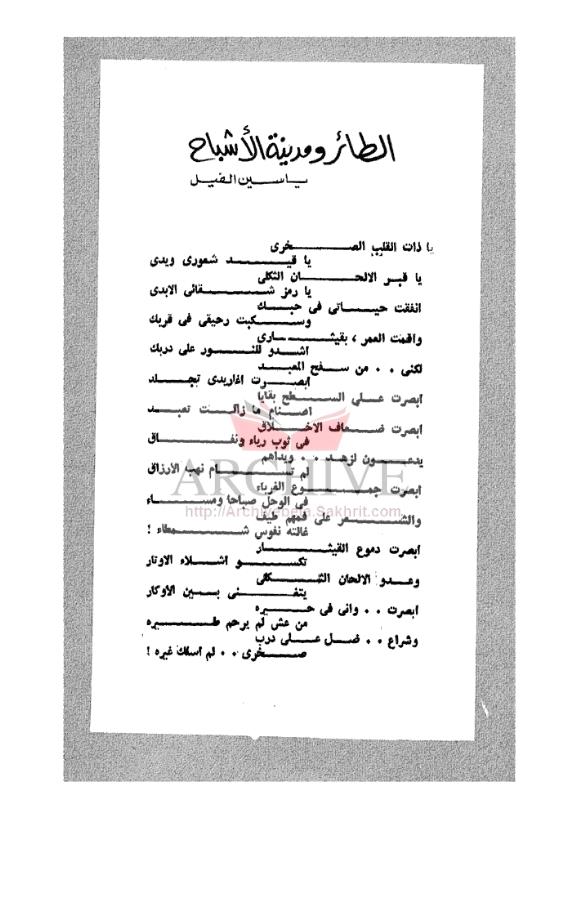 الطائر ومدينة الأشباح
ياسين الفيل
يا ذات القلب الصخرى
يا قيد شعورى ويدى
يا قبر الالحان الثكلى
يا رمز شقائى الابدى
انفقت حياتى فى حبك
وسكبت رحيقى فى قربك
واقمت العمر ، بقيثارى
اشدو للنور على دربك
لكنى . . من سفح المعبد
ابصرت اغاريدى تجلد
ابصرت على السطح بقايا
اصنام ما زالت تعبد
ابصرت ضعاف الاخلاق
فى ثوب رياء ونفاق
يدعون لزهد . . ويداهم
لم تسأم نهب الارزاق
ابصرت جموع الغرباء
فى الوحل صباحا ومساء
والشعر على فمهم طيف
غالته نفوس شمطاء !
ابصرت دموع القيثار
تكسو اشلاء الاوتار
وعدو الالحان الثكلى
يتغنى بين الاوكار
ابصرت . . وانى فى حيره
من عش لم يرحم طيره
وشراع . . ضل على درب
صخرى . . لم اسلك غيره !
ARCHIVE
http://Archivebeta.Sakhrit.com